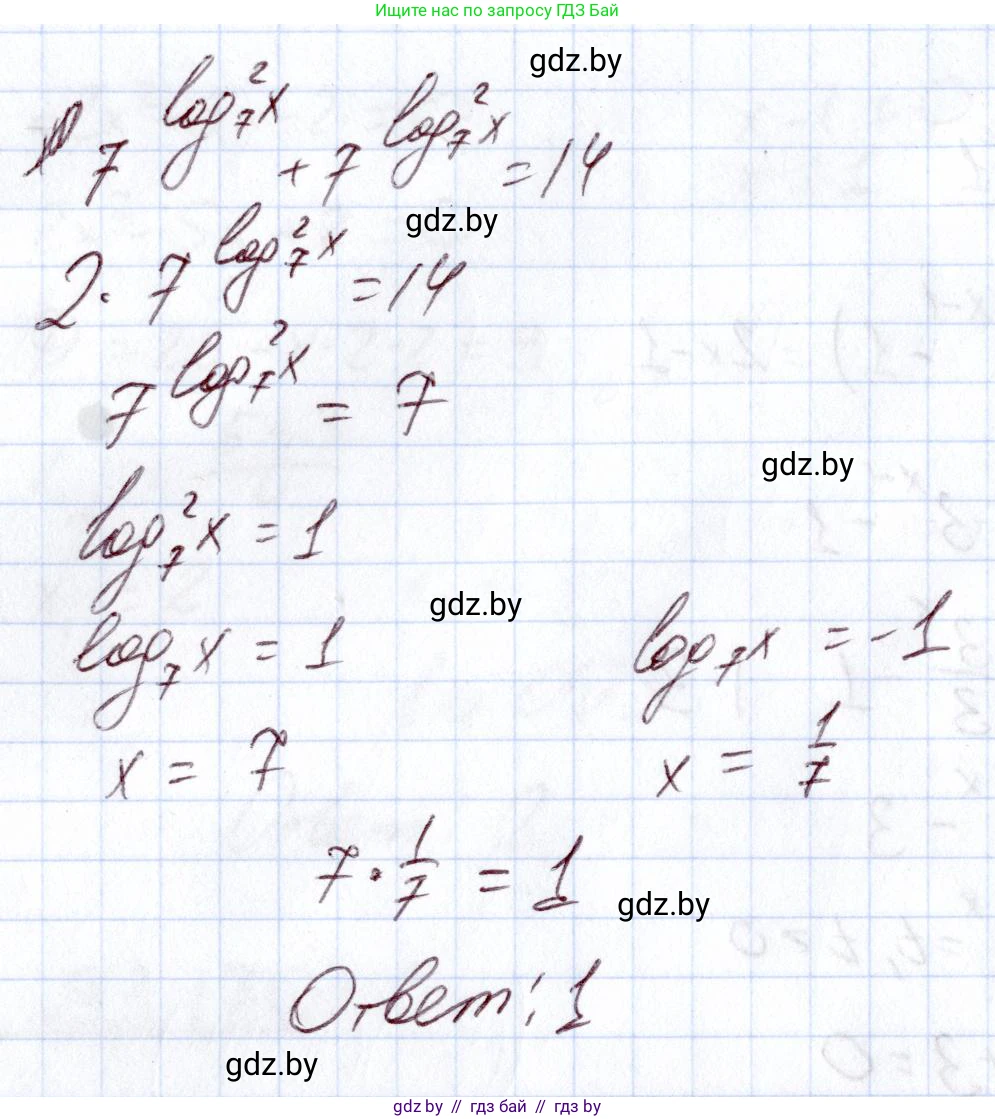 Ищите нас по запросу ГДЗ Бай
gdz.by
7^(log₇²x) + 7^(log₇²x) = 14
gdz.by
2 · 7^(log₇²x) = 14
7^(log₇²x) = 7
gdz.by
log₇²x = 1
gdz.by
log₇x = 1 log₇x = -1
x = 7 x = 1/7
7 · 1/7 = 1
gdz.by
Ответ: 1
gdz.by
gdz.by // гдз бай // gdz.by